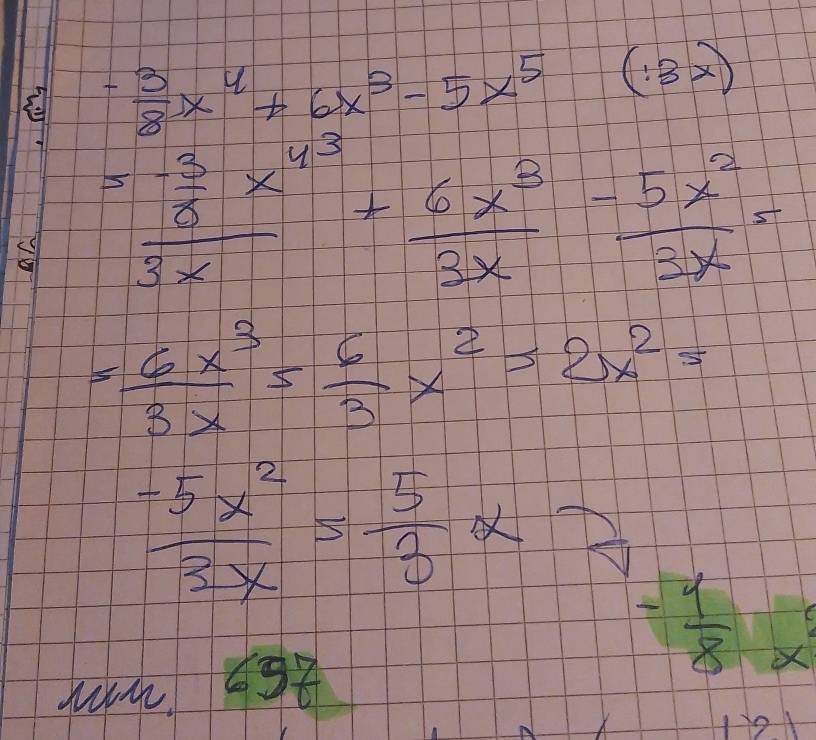 -3/8 x⁴ + 6x³ - 5x⁵ (:3x)
= -3/8 x⁴³ / 3x + 6x³ / 3x - 5x² / 3x =
= 6x³ / 3x = 6/3 x² = 2x² =
-5x² / 3x = 5/3 x
-1/8 x
697